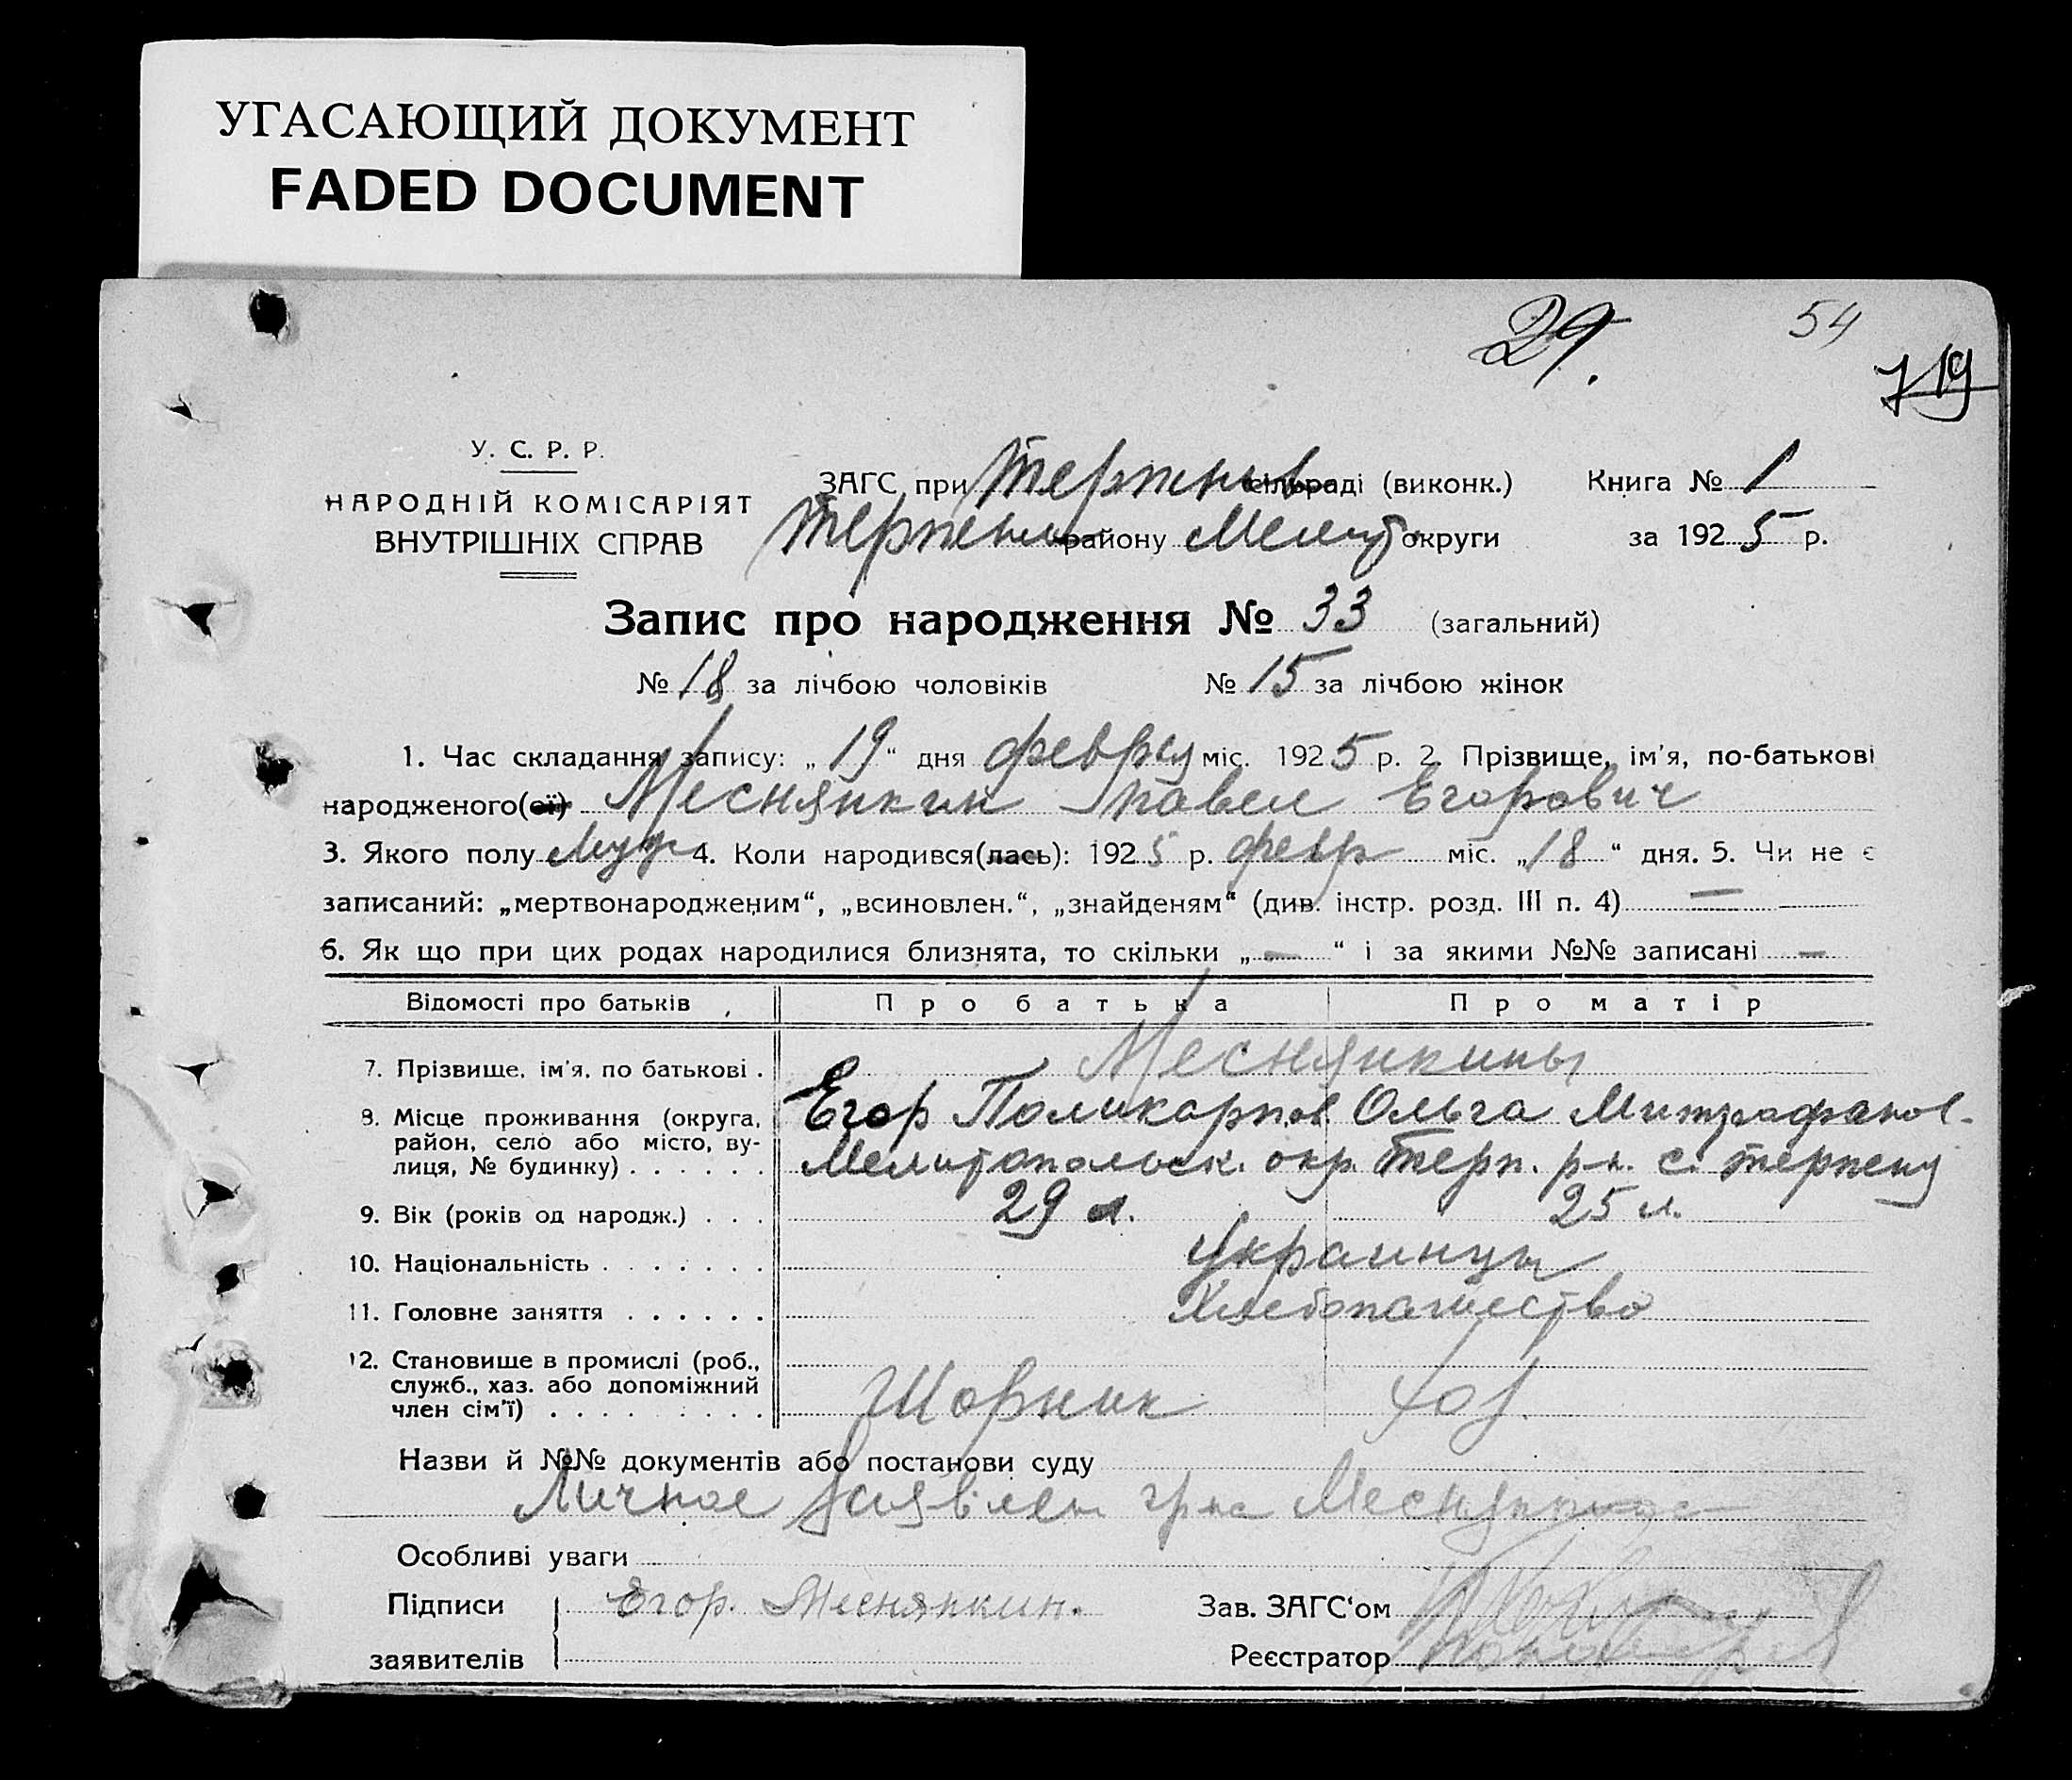 УГАСАЮЩИЙ ДОКУМЕНТ
FADED DOCUMENT
29.
54
719
У. С. Р. Р.
НАРОДНІЙ КОМІСАРІЯТ
ВНУТРІШНІХ СПРАВ
ЗАГС при Терпен сільраді (виконк.)
Книга № 1
району Мелит округи
за 1925 р.
Запис про народження № 33 (загальний)
№ 18 за лічбою чоловіків № 15 за лічбою жінок
1. Час складання запису: „19“ дня февраля міс. 1925 р. 2. Прізвище, ім'я, по-батькові
народженого(ої) Меснянкин Павел Егорович
3. Якого полу Муж 4. Коли народився(лась): 1925 р. февр міс. „18“ дня. 5. Чи не є
записаний: „мертвонародженим“, „всиновлен.“, „знайденям“ (див. інстр. розд. III п. 4) —
6. Як що при цих родах народилися близнята, то скільки „—“ і за якими №№ записані —
Відомості про батьків Про батька Про матір
7. Прізвище, ім'я, по батькові . Меснянкины
Егор Поликарпов. Ольга Митрофанов-
8. Місце проживання (округа,
район, село або місто, ву-
лиця, № будинку) . . . . . . Мелитопольск. окр. Терп. р-н. с. Терпен
9. Вік (років од народж.) . . . 29 л. 25 л.
10. Національність . . . . . . . Украинцы
11. Головне заняття . . . . . . Хлебопашество
12. Становище в промислі (роб.,
служб., хаз. або допоміжний
член сім'ї) . . . . . . . . Шорник хоз.
Назви й №№ документів або постанови суду
Личное заявлен гр-на Меснянкин
Особливі уваги
Підписи
заявителів
Егор. Меснянкин.
Зав. ЗАГС‘ом
Реєстратор